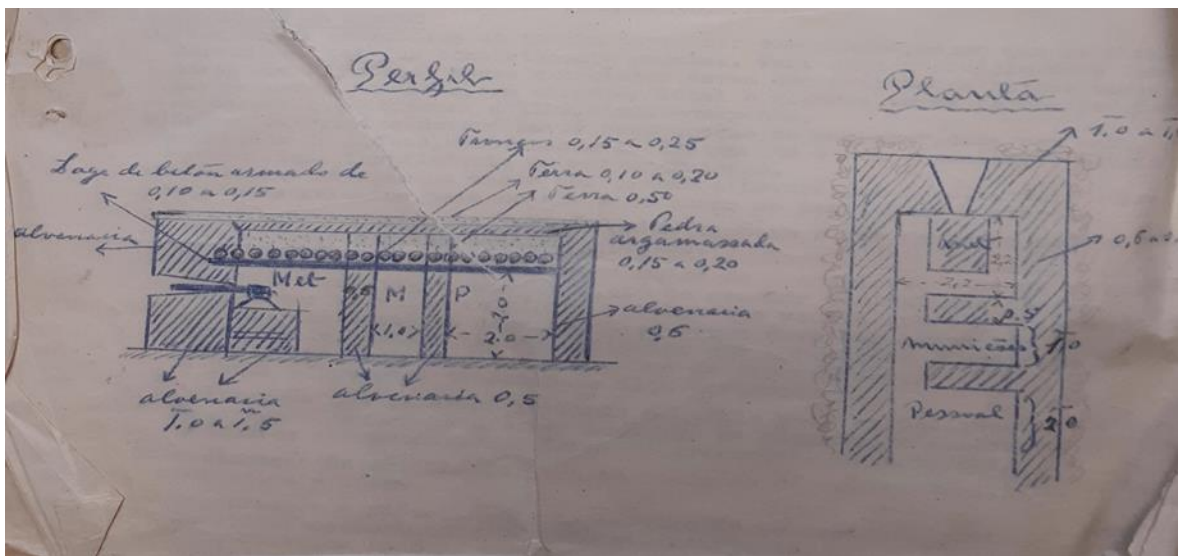 Perfil
Troncos 0,15 a 0,25
Terra 0,10 a 0,20
Terra 0,50
Lage de betón armado de
0,10 a 0,15
alvenaria
Pedra
argamassada
0,15 a 0,20
Met
0,5
M
P
1.0
2.0
2.0
alvenaria
0,6
alvenaria
1,0 a 1,5
alvenaria 0,5
Planta
1.0 a 1,
0,6 a
Met
2,2
2,2
0.5
munições
1.0
Pessoal
2.0